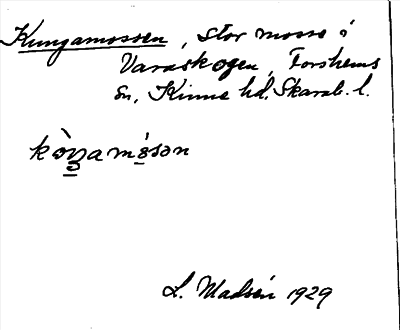 Kungamossen, stor mosse i
Varaskogen, Forshems
sn, Kinne hd. Skarab. l.
kòŋamósən
L. Madsén 1929